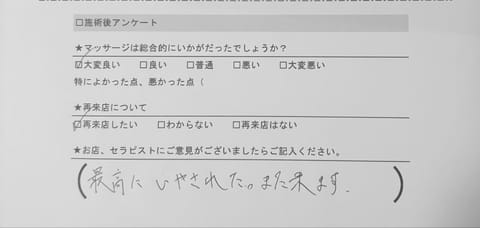 □施術後アンケート
★マッサージは総合的にいかがだったでしょうか？
☑大変良い □良い □普通 □悪い □大変悪い
特によかった点、悪かった点（
★再来店について
☑再来店したい □わからない □再来店はない
★お店、セラピストにご意見がございましたらご記入ください。
(最高にいやされた。また来ます.)